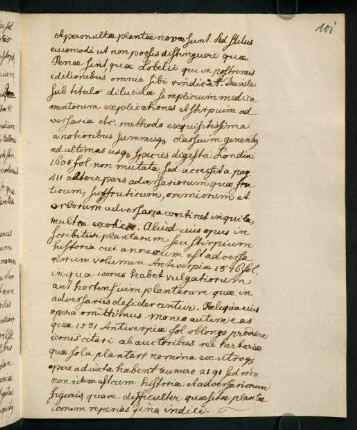 101
et permultae plantae novae sunt. Sed stilus
eiusmodi ut non possis distinguere quae
Penae sint quae Lobelii qui in postremis
editionibus omnia sibi vindicat.
sub titulo dilucidae simplicium medica
mentorum explicationes & stirpium ad
versaria etc methodo exquisitissima
a notioribus summisque classium generib,
ad ultimas usque species digesta Londini
1605 fol. non mutata sed accessit a pag
altera pars adversariorum quae fru
ticum, suffruticum,
arborum adversaria continet in quibus
multa exotica. Aliud eius opus in
scribitur plantarum seu stirpium
historia cui annexum est adversa
riorum volumen Antverpiae 1576 fol.
in qua icones habet vulgatiorum
aut hortensium plantarum quae in
adversariis desiderantur. Reliqua eius
opera omittimus
quae 1581 Antverpiae fol oblongo
icones citari ab auctoribus rei herbariae
quae sola plantarum nomina ex utroque
opere adiecta habent numero 2191 sed
non item historiae & adversariorum
figuris quare difficulter quaesitae plantae
iconem reperias sine indice.